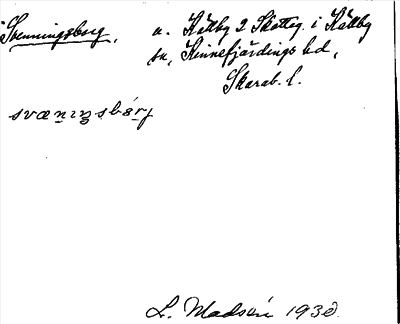 Svenningsberg, u. Källby 2 Skatteg. i Källby
sn, Kinnefjärdings hd,
Skarab. l.
svæniŋsbárj
L. Madsén 1930.